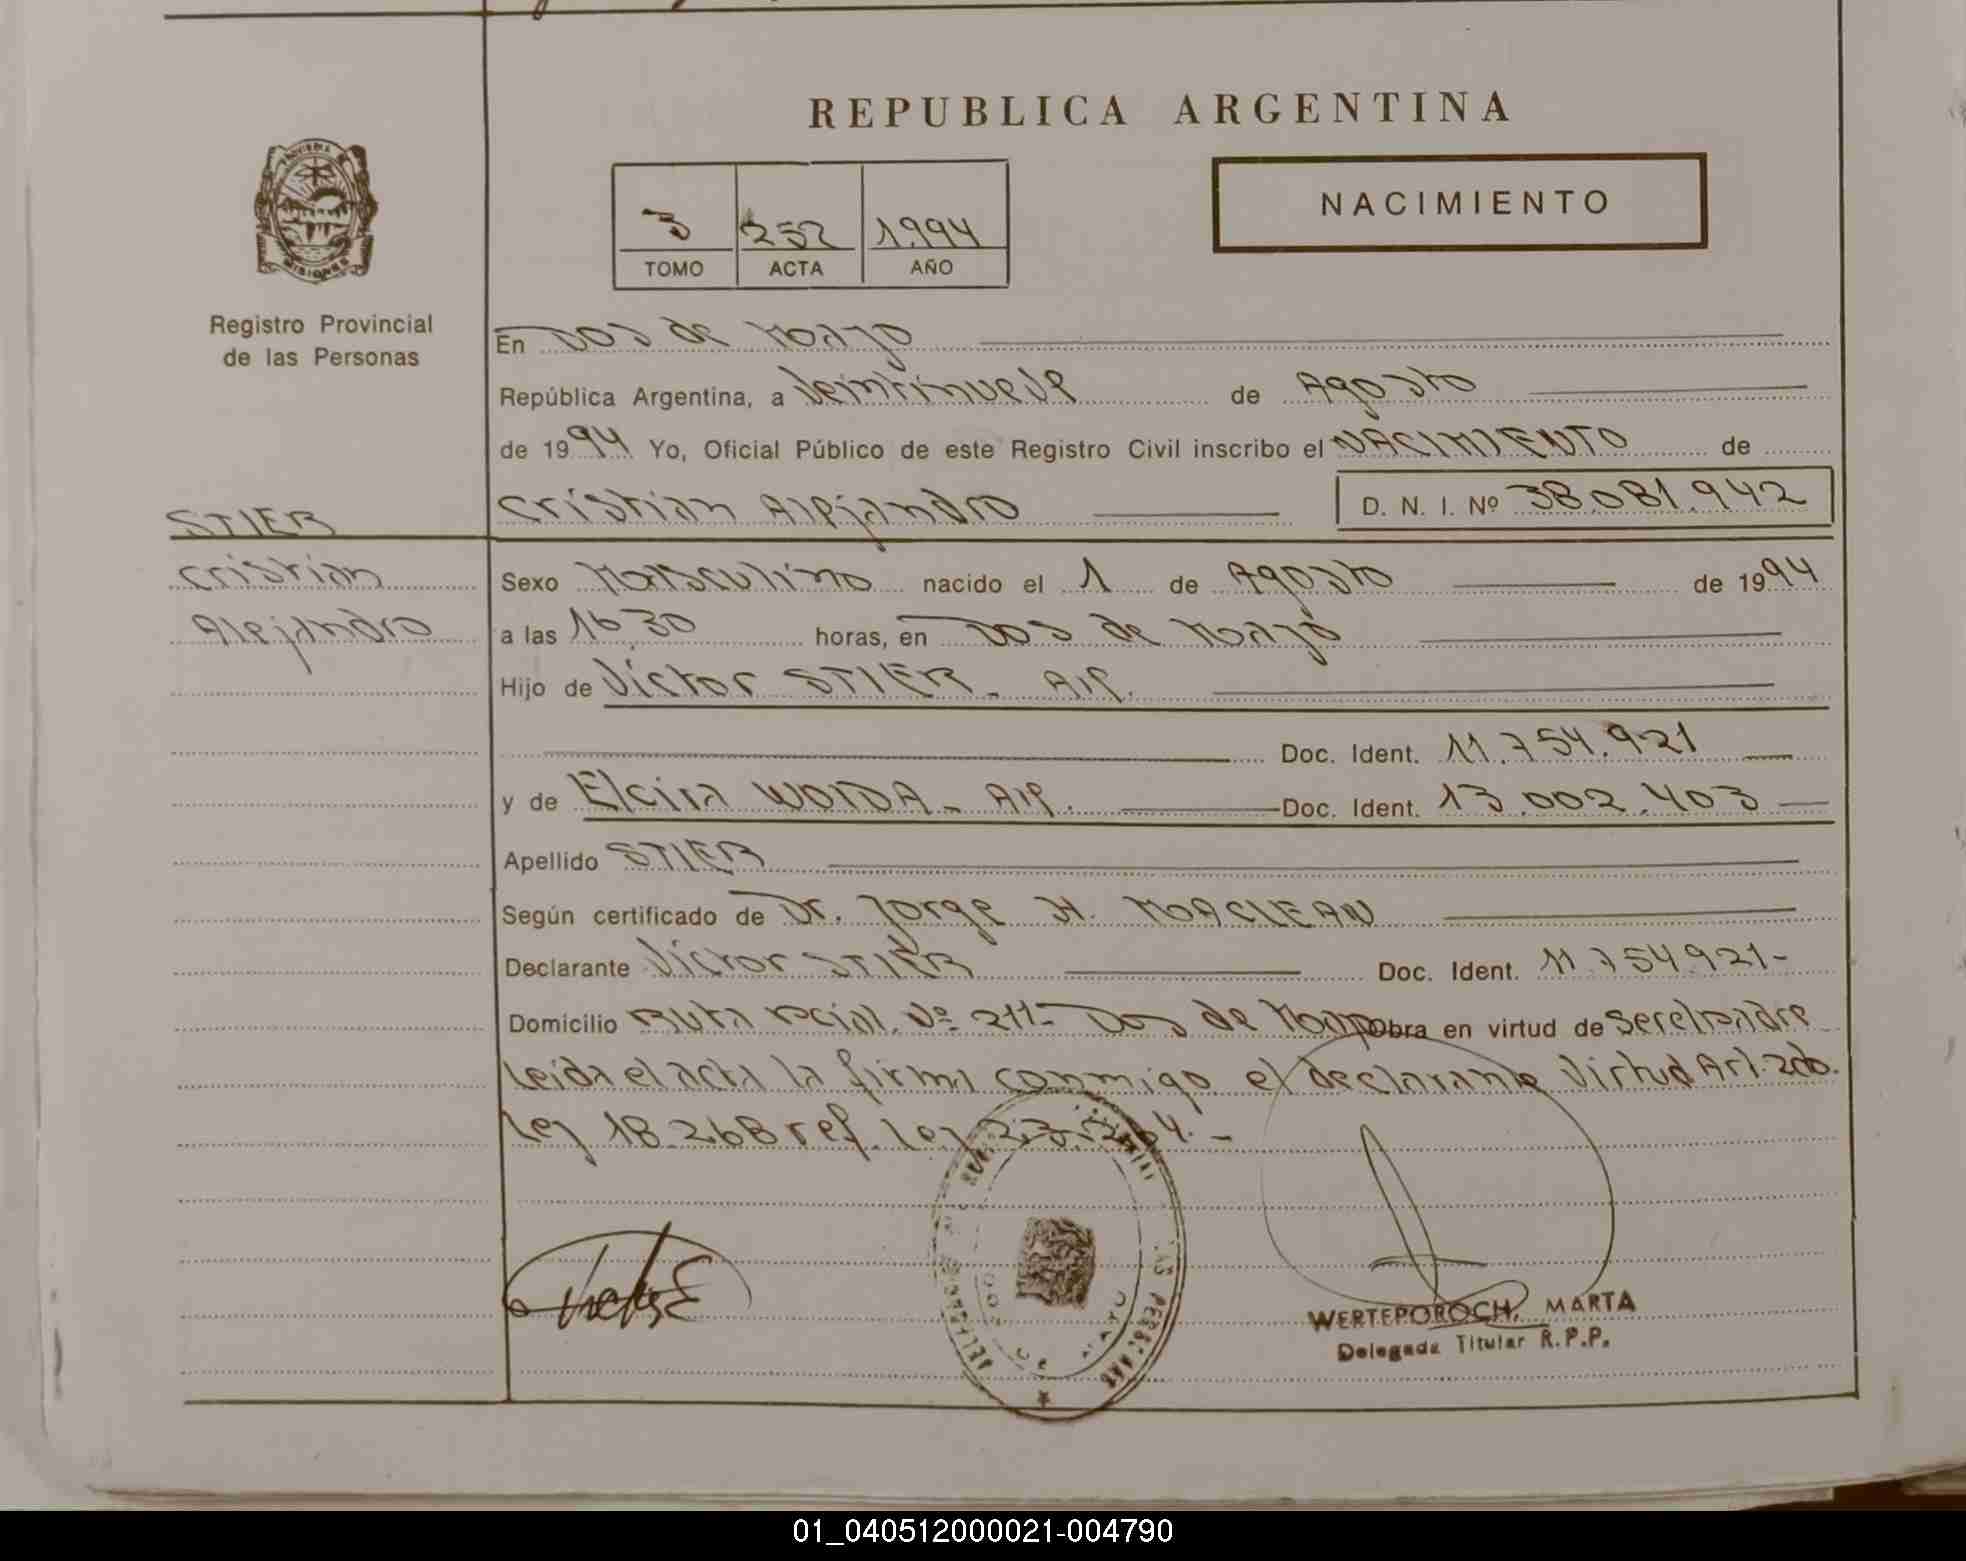 REPUBLICA ARGENTINA
NACIMIENTO
3 252 1994
TOMO ACTA AÑO
PROVINCIA DE
MISIONES
Registro Provincial
de las Personas
STIER
Cristian
Alejandro
En Dos de Mayo
República Argentina, a Veintinueve de Agosto
de 1994 Yo, Oficial Público de este Registro Civil inscribo el NACIMIENTO de
Cristian Alejandro D. N. I. Nº 38.081.942
Sexo Masculino nacido el 1 de Agosto de 1994
a las 16.30 horas, en Dos de Mayo
Hijo de Víctor STIER - Arg.
Doc. Ident. 11.754.921
y de Elcira WONDA - Arg. Doc. Ident. 13.002.403
Apellido STIER
Según certificado de Dr. Jorge H. MACLEAN
Declarante Víctor STIER Doc. Ident. 11.754.921-
Domicilio Ruta Pcial. Nº 211- Dos de Mayo Obra en virtud de Ser el padre
Leída el acta la firma conmigo el declarante Virtud Art. 2do.
Ley 18.268 ref. Ley 23.264.-
DOS DE MAYO
WERTEPOROCH, MARTA
Delegada Titular R.P.P.
01_040512000021-004790